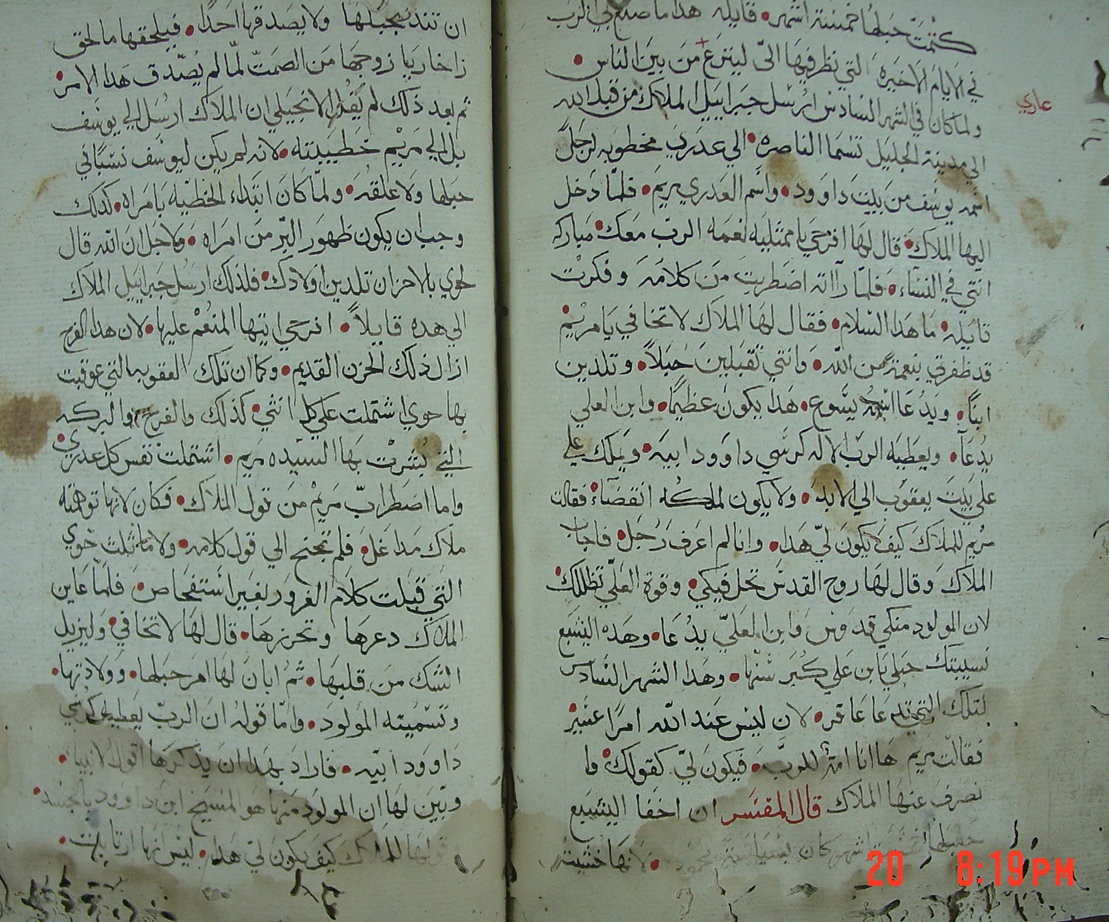 كتمت حبلها خمسة اشهر• قايله هذا ما صنع لي الرب
في الايام الاخيره التي نظر فيها الىّ لينزع من بين الناس•
ولما كان في الشهر السادس ارسل جبراييل الملاك من قبل الله
عاري
الي مدينة الجليل تسما الناصره• الي عدري مخطوبه لرجل
اسمه يوسف من بيت داوود• واسم العدري مريم• فلما دخل
اليها الملاك• قال لها افرحي يا ممتليه نعمه الرب معك• مباركه
انتي في النساء• فلما رااته اضطربت من كلامه وفكرت
قايله• ما هذا السلام• فقال لها الملاك لا تخافي يا مريم
قد ظفرتي بنعمة من الله• وانتي تقبلين حبلاً• وتلدين
ابناً• ويدعا اسمه يسوع• هذا يكون عظيماً• وابن العلي
يدعا• ويعطيه الرب الاله كرسي داوود ابيه• ويملك علي
علي بيت يعقوب الي الابد• ولا يكون لملكه انقضاء• فقالت
مريم للملاك كيف يكون لي هذا• وانا لم اعرف رجل• فاجاب
الملاك وقال لها روح القدس تحل فيكي• وقوة العلي تظللك
لان المولود منكي قدوس وابن العلي يدعا• وهذه اليشبع
نسيبتك حبلي بابن علي كبر سنها• وهذا الشهر السادس
لتلك التي تدعا عاقر• لان ليس عند الله امرا عسير
فقالت مريم هاانا امة للرب• فيكون لي كقولك• وا
نصرف عنها الملاك قال المفسر ان اخفا اليشبع
حبلها خمسة اشهر كان لسياسة • لانها خشيت
ان تندد بحبلها ولا يصدقها احداً• فيلحقها ما لحق
زاخاريا زوجها من الصمت لما لم يصدق هذا الامر•
ثم بعد ذلك لم يقل الانجيلي ان الملاك ارسل الي يوسف
بل الي مريم خطيبته• لانه لم يكن ليوسف نسباً في
حبلها ولا علقه• ولما كان ابتداء الخطيه بامراه• كذلك
وجب ان يكون ظهور البر من امراه• ولاجل ان الله قال
لحوي بالاحزان تلدين اولادك• فلذلك ارسل جبراييل الملاك
الي هذه قايلاً• افرحي ايتها المنعم عليها• لان هذا الفرح
ازال ذلك الحزن القديم• وكما ان تلك العقوبه التي عوقبت
بها حوي اشتملت علي كل انثي• كذلك والفرح والبركه
التي بُشرت بها السيده مريم• اشتملت نفس كل عدري•
واما اضطراب مريم من قول الملاك• فكان لانها توهمته
ملاك مداغل• فلم تجنح الي قول كلامه• ولا ماثلت حوي
التي قبلت كلام الغرور بغير استفحاص• فلما عاين
الملاك دعرها وتحرزها• قال لها لا تخافي• وليزيل
الشك من قلبها• ثم ابان لها امر حبلها• وولادتها•
وتسميته المولود• واما قوله ان الرب يعطيه كرسي
داوود ابيه• فاراد بهدا ان يذكرها اقوال الانبيا•
وتبين لها ان المولود منها هو المسيح ابن داوود بالجسد•
وقولها للملاك كيف يكون لي هذا• ليس انها ارتابت•